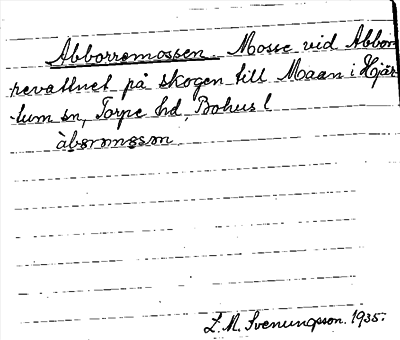 Abborremossen. Mosse vid Abbor
revattnet på skogen till Maan i Hjär-
tum sn, Torpe hd, Bohus l
L. M. Svenungsson. 1935.